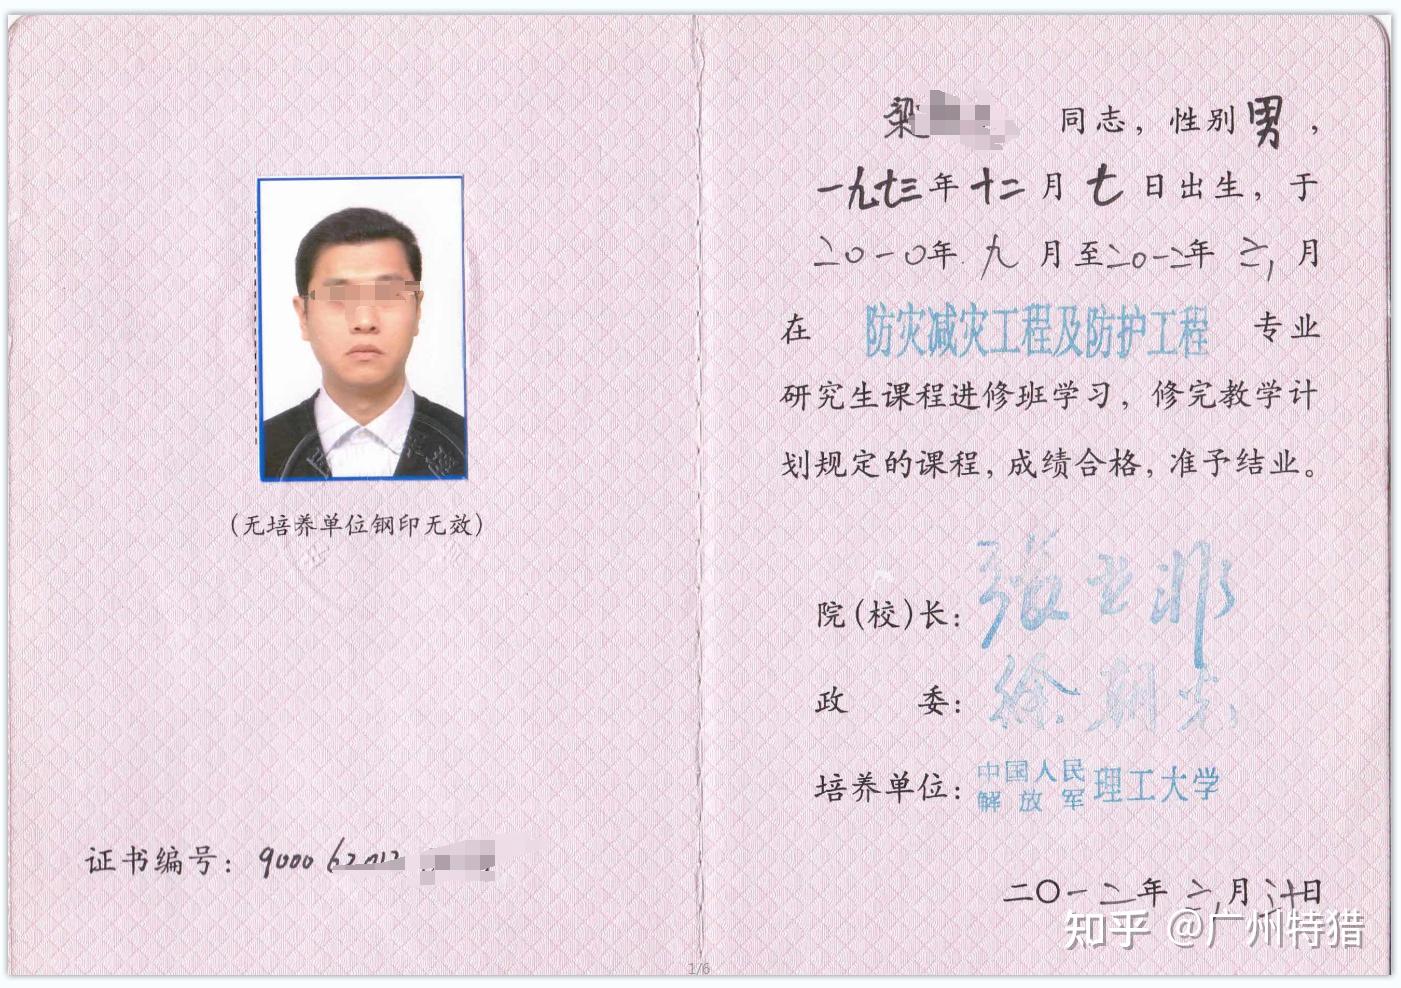 (无培养单位钢印无效)
证书编号：900062012
梁 同志，性别男，
一九七三年十二月七日出生，于
二〇一〇年九月至二〇一二年六月
在 防灾减灾工程及防护工程 专业
研究生课程进修班学习，修完教学计
划规定的课程，成绩合格，准予结业。
院(校)长：张亚非
政 委：徐朝
培养单位：中国人民解放军理工大学
二〇一二年六月 日
知乎 @广州特猎
1/6